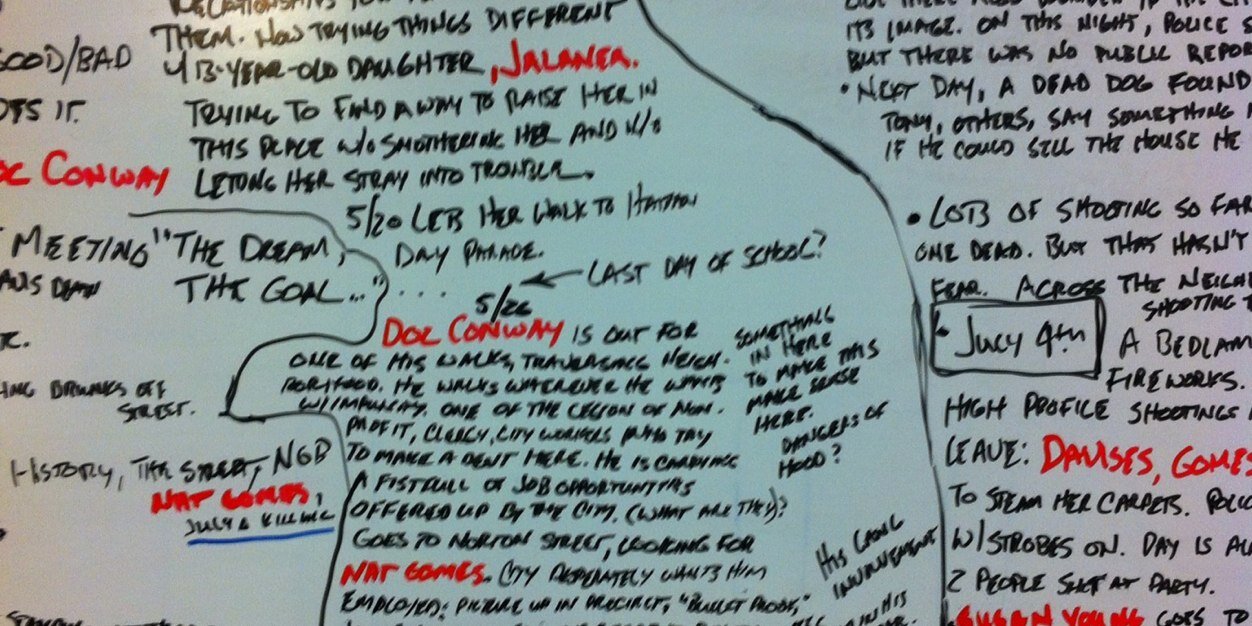 GOOD/BAD
IT.
DOC CONWAY
MEETING "THE DREAM,
THE GOAL..."
OFF
STREET.
HISTORY, THE STREET, NGB
NAT GOMES,
JULY 2 KILLING
RELATIONSHIPS
THEM. NOW TRYING THINGS DIFFERENT
13-YEAR-OLD DAUGHTER, JALANEA.
TRYING TO FIND A WAY TO RAISE HER IN
THIS PLACE W/O SMOTHERING HER AND W/O
LETTING HER STRAY INTO TROUBLE.
5/20 LETS HER WALK TO HAITIAN
DAY PARADE.
LAST DAY OF SCHOOL?
5/26
DOC CONWAY IS OUT FOR
ONE OF HIS WALKS, TRAVERSING NEIGH-
BORHOOD. HE WALKS WHEREVER HE WANTS
W/IMPUNITY. ONE OF THE LEGION OF NON-
PROFIT, CLERGY, CITY WORKERS WHO TRY
TO MAKE A DENT HERE. HE IS CARRYING
A FISTFULL OF JOB OPPORTUNITIES
OFFERED UP BY THE CITY. (WHAT ARE THEY)?
GOES TO NORTON STREET, LOOKING FOR
NAT GOMES. CITY DESPERATELY WANTS HIM
EMPLOYED: PICTURE UP IN PRECINCT, "BULLET PROOF,"
SOMETHING
IN HERE
TO MAKE THIS
MAKE SENSE
HERE.
DANGERS OF
HOOD?
HIS GANG
INVOLVEMENT
IN HIS
ITS IMAGE. ON THIS NIGHT, POLICE
BUT THERE WAS NO PUBLIC REPOR
• NEXT DAY, A DEAD DOG FOUND
TONY, OTHERS, SAY SOMETHING
IF HE COULD SELL THE HOUSE HE
• LOTS OF SHOOTING SO FAR
ONE DEAD. BUT THAT HASN'T
FEAR. ACROSS THE NEIGH
SHOOTING
JULY 4TH
A BEDLAM
FIREWORKS.
HIGH PROFILE SHOOTINGS
LEAVE: DAVISES, GOMES
TO STEAM HER CARPETS. POLIC
W/STROBES ON. DAY IS
2 PEOPLE SHOT AT PARTY.
SUSAN YOUNG GOES TO